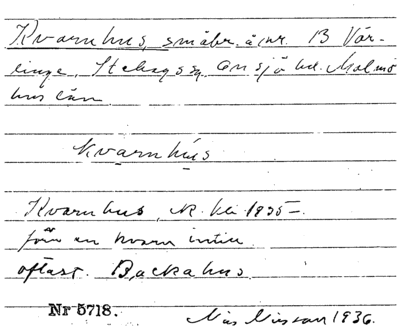 Kvarnhus, småbr. å nr. 13 Vär-
linge, Stehags sn. Onsjö hd. Malmö
hus län
Kvarnhus
Kvarnhus, 1835 –
från en kvarn intill
oftast. Backahus
Nr 5718.
Nils Nilsson 1936.